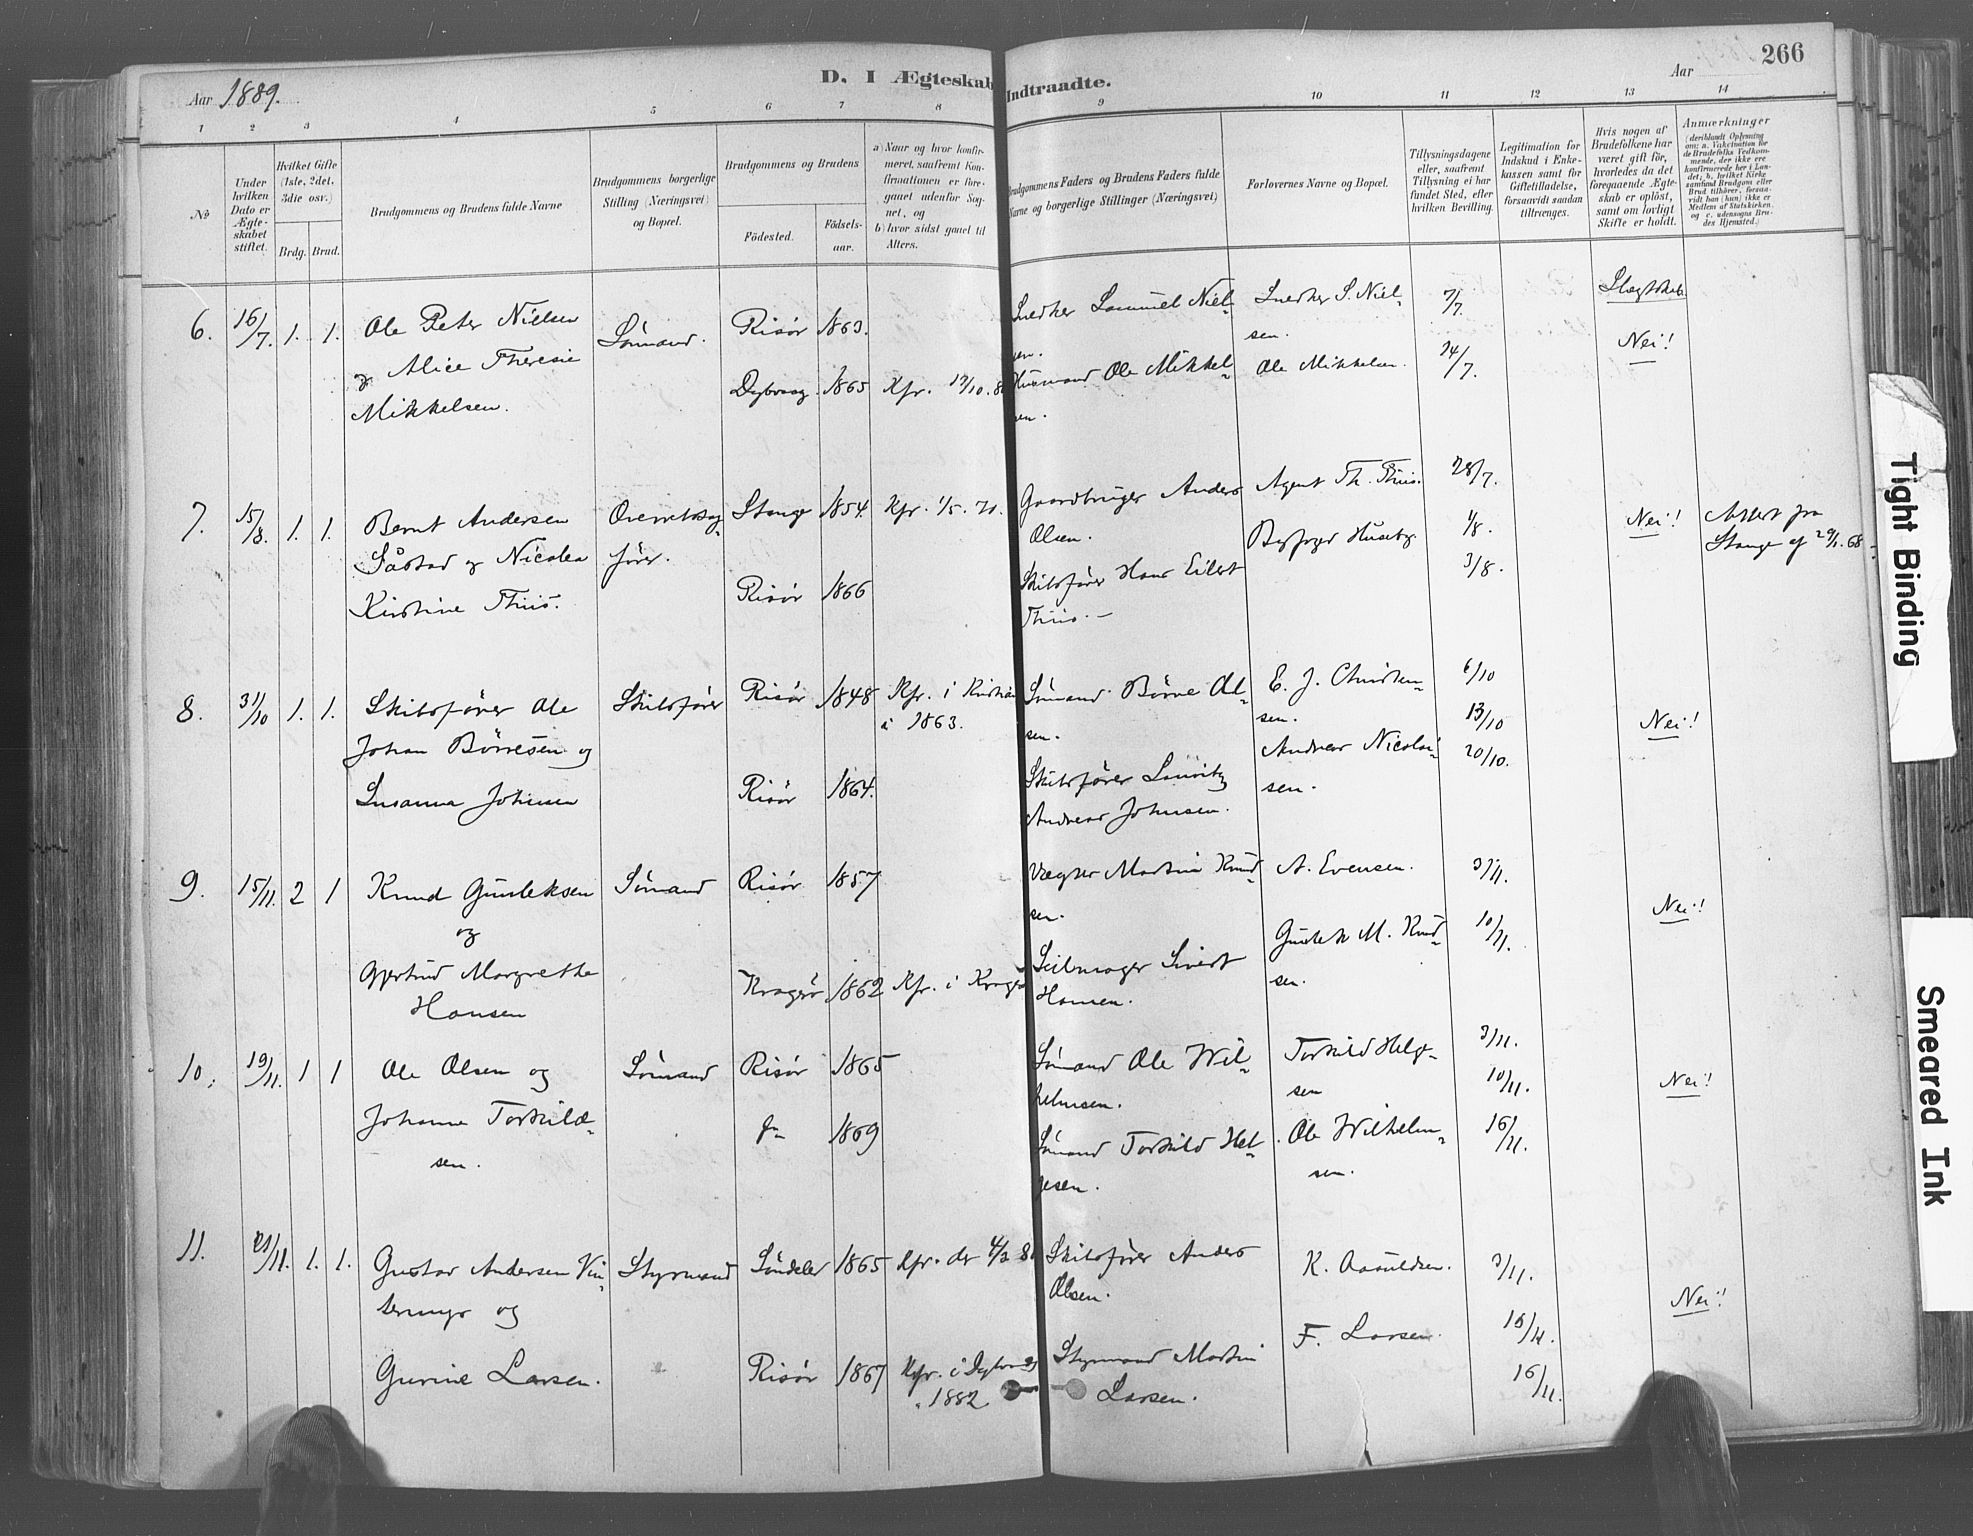 Aar 1889.
D. I Ægteskab Indtraadte.
Aar
266
1 2 3 4 5 6 7 8 9 10 11 12 13 14
No
Under hvilken Dato er Ægteskabet stiftet.
Hvilket Gifte (1ste, 2det, 3die osv.)
Brdg. Brud.
Brudgommens og Brudens fulde Navne
Brudgommens borgerlige Stilling (Næringsvei) og Bopæl.
Brudgommens og Brudens
Fødested.
Fødselsaar.
a) Naar og hvor konfirmeret, saafremt Konfirmationen er foregaaet udenfor Sognet, og
b) hvor sidst gaaet til Alters.
Brudgommens Faders og Brudens Faders fulde Navne og borgerlige Stillinger (Næringsvei)
Forlovernes Navne og Bopæl.
Tillysningsdagene eller, saafremt Tillysning ei har fundet Sted, efter hvilken Bevilling.
Legitimation for Indskud i Enkekassen samt for Giftetilladelse, forsaavidt saadan tiltrænges.
Hvis nogen af Brudefolkene har været gift før, hvorledes da det foregaaende Ægteskab er opløst, samt om lovligt Skifte er holdt.
Anmærkninger
6. 16/7. 1. 1. Ole Peter Nielsen
og Alice Theresie
Mikkelsen.
Sömand.
Risör 1863.
Dybvaag. 1865 Kfr. 12/10.
Snedker Samuel Nielsen.
Husmand Ole Mikkelsen.
Snedker S. Nielsen.
Ole Mikkelsen.
7/7.
14/7.
Slægtskab.
Nei!
7. 15/8. 1. 1. Bernt Andersen
Såstad og Nicolea
Kirstine Thiis.
Overretssagförer.
Stange 1854. Kfr. 1/5. 70.
Risör 1866
Gaardbruger Anders
Olsen.
Skibsförer Hans Eilert
Thiis. —
Agent Th. Thiis.
Byfoged Huseby.
28/7.
1/8.
3/8.
Nei!
Attest fra
Stange af
8. 31/10 1. 1. Skibsförer Ole
Johan Börresen og
Susanna Johnsen
Skibsförer
Risör 1848 Kfr. i Kristian
i 1863.
Risör 1864.
Sömand Börre Olsen.
Skibsförer Lauritz
Andreas Johnsen.
E. J. Christensen.
Andreas Nicolaisen.
6/10
13/10
20/10.
Nei!
9. 15/11. 2 1 Knud Gunleksen
og
Gjertrud Margrethe
Hansen
Sömand
Risör 1857
Kragerö 1862 Kfr. i Kragerö
Vægter Martin Knudsen.
Seilmager Sivert
Hansen.
A. Evensen.
Gunlek M. Knudsen.
3/11.
10/11.
Nei!
10. 19/11. 1 1 Ole Olsen og
Johanne Torkildsen.
Sömand
Risör 1865
1869
Sömand Ole Wilhelmsen.
Sömand Torkild Helgesen.
Torkild Helgesen
Ole Wilhelmsen.
3/11.
10/11.
16/11.
Nei!
11. 21/11. 1. 1. Gustav Andersen
og
Gurine Larsen.
Styrmand
Söndeler 1865 Kfr. der
Risör 1867 Kfr. i Dybvaag
1882
Skibsförer Anders
Olsen.
Styrmand Martin
Larsen.
K. Aanuldsen.
F. Larsen.
3/11.
10/11.
16/11.
Nei!
Tight Binding
Smeared Ink